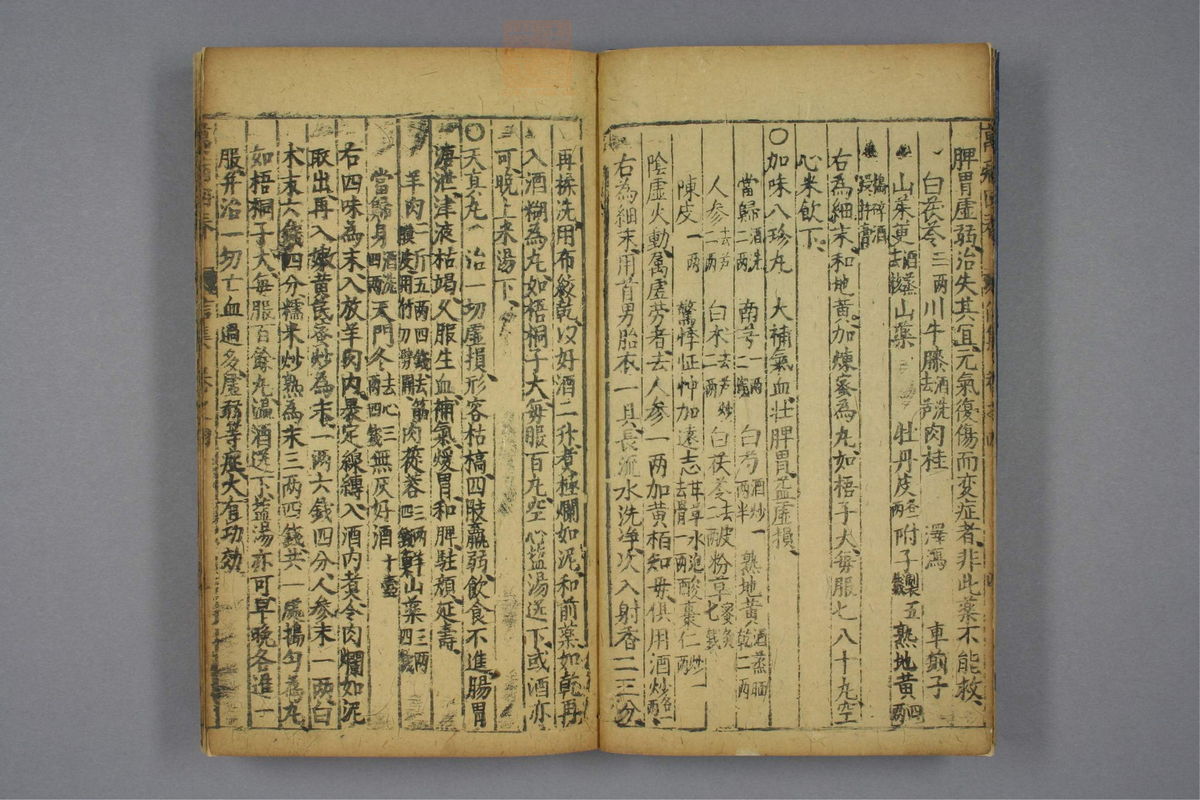 脾胃虛弱治失其宜元氣復傷而变症者非此藥不能救
白茯苓三两川牛膝酒洗去芦肉桂 澤瀉 車前子
山茱更酒蒸去核山藥 牡丹皮 附子製五錢熟地黄四两
搗碎酒 膏
右為細末和地黄加煉蜜為丸如梧子大每服七八十丸空
心米飲下
○加味八珍丸 大補氣血壮脾胃益虛損
當歸酒洗二两 南芎一两 白芍酒炒一两半 熟地黄酒蒸晒乾二两
人参去芦二两 白术去芦炒二两 白茯苓去皮二两 粉草蜜炙七錢
陳皮一两 驚悸怔忡加遠志甘草水泡去骨一两酸棗仁炒一两
陰虛火動属虛劳者去人参一两加黄栢知毋俱用酒炒各一两
右為細末用首男胎衣一具長流水洗净次入射香二三分
再捺洗用布絞乾以好酒二升煮極爛如泥和前藥如乾再
入酒糊為丸如梧桐子大毎服百丸空心塩湯送下或酒亦
可晚上米湯下
○天真丸 治一切虛損形容枯槁四肢羸弱飲食不進腸胃
溏泄津液枯竭久服生血補氣煖胃和脾駐顔延壽
羊肉二斤五两四錢去筋膜皮用竹刀劈開肉蓯蓉三两四錢鮮山藥三两四錢
當歸身酒洗四两天門冬去心三两四錢無灰好酒十壺
右四味為末入放羊肉内暴定線縛入酒内煮令肉爛如泥
取出再入嫩黄芪蜜炒為末一两六錢四分人参末一两白
术末六錢四分糯米炒熟為末三两四錢共一處搗匀為丸
如梧桐子大毎服百餘丸温酒送下塩湯亦可早晚各進一
服并治一切亡血過多虛弱等症大有功効